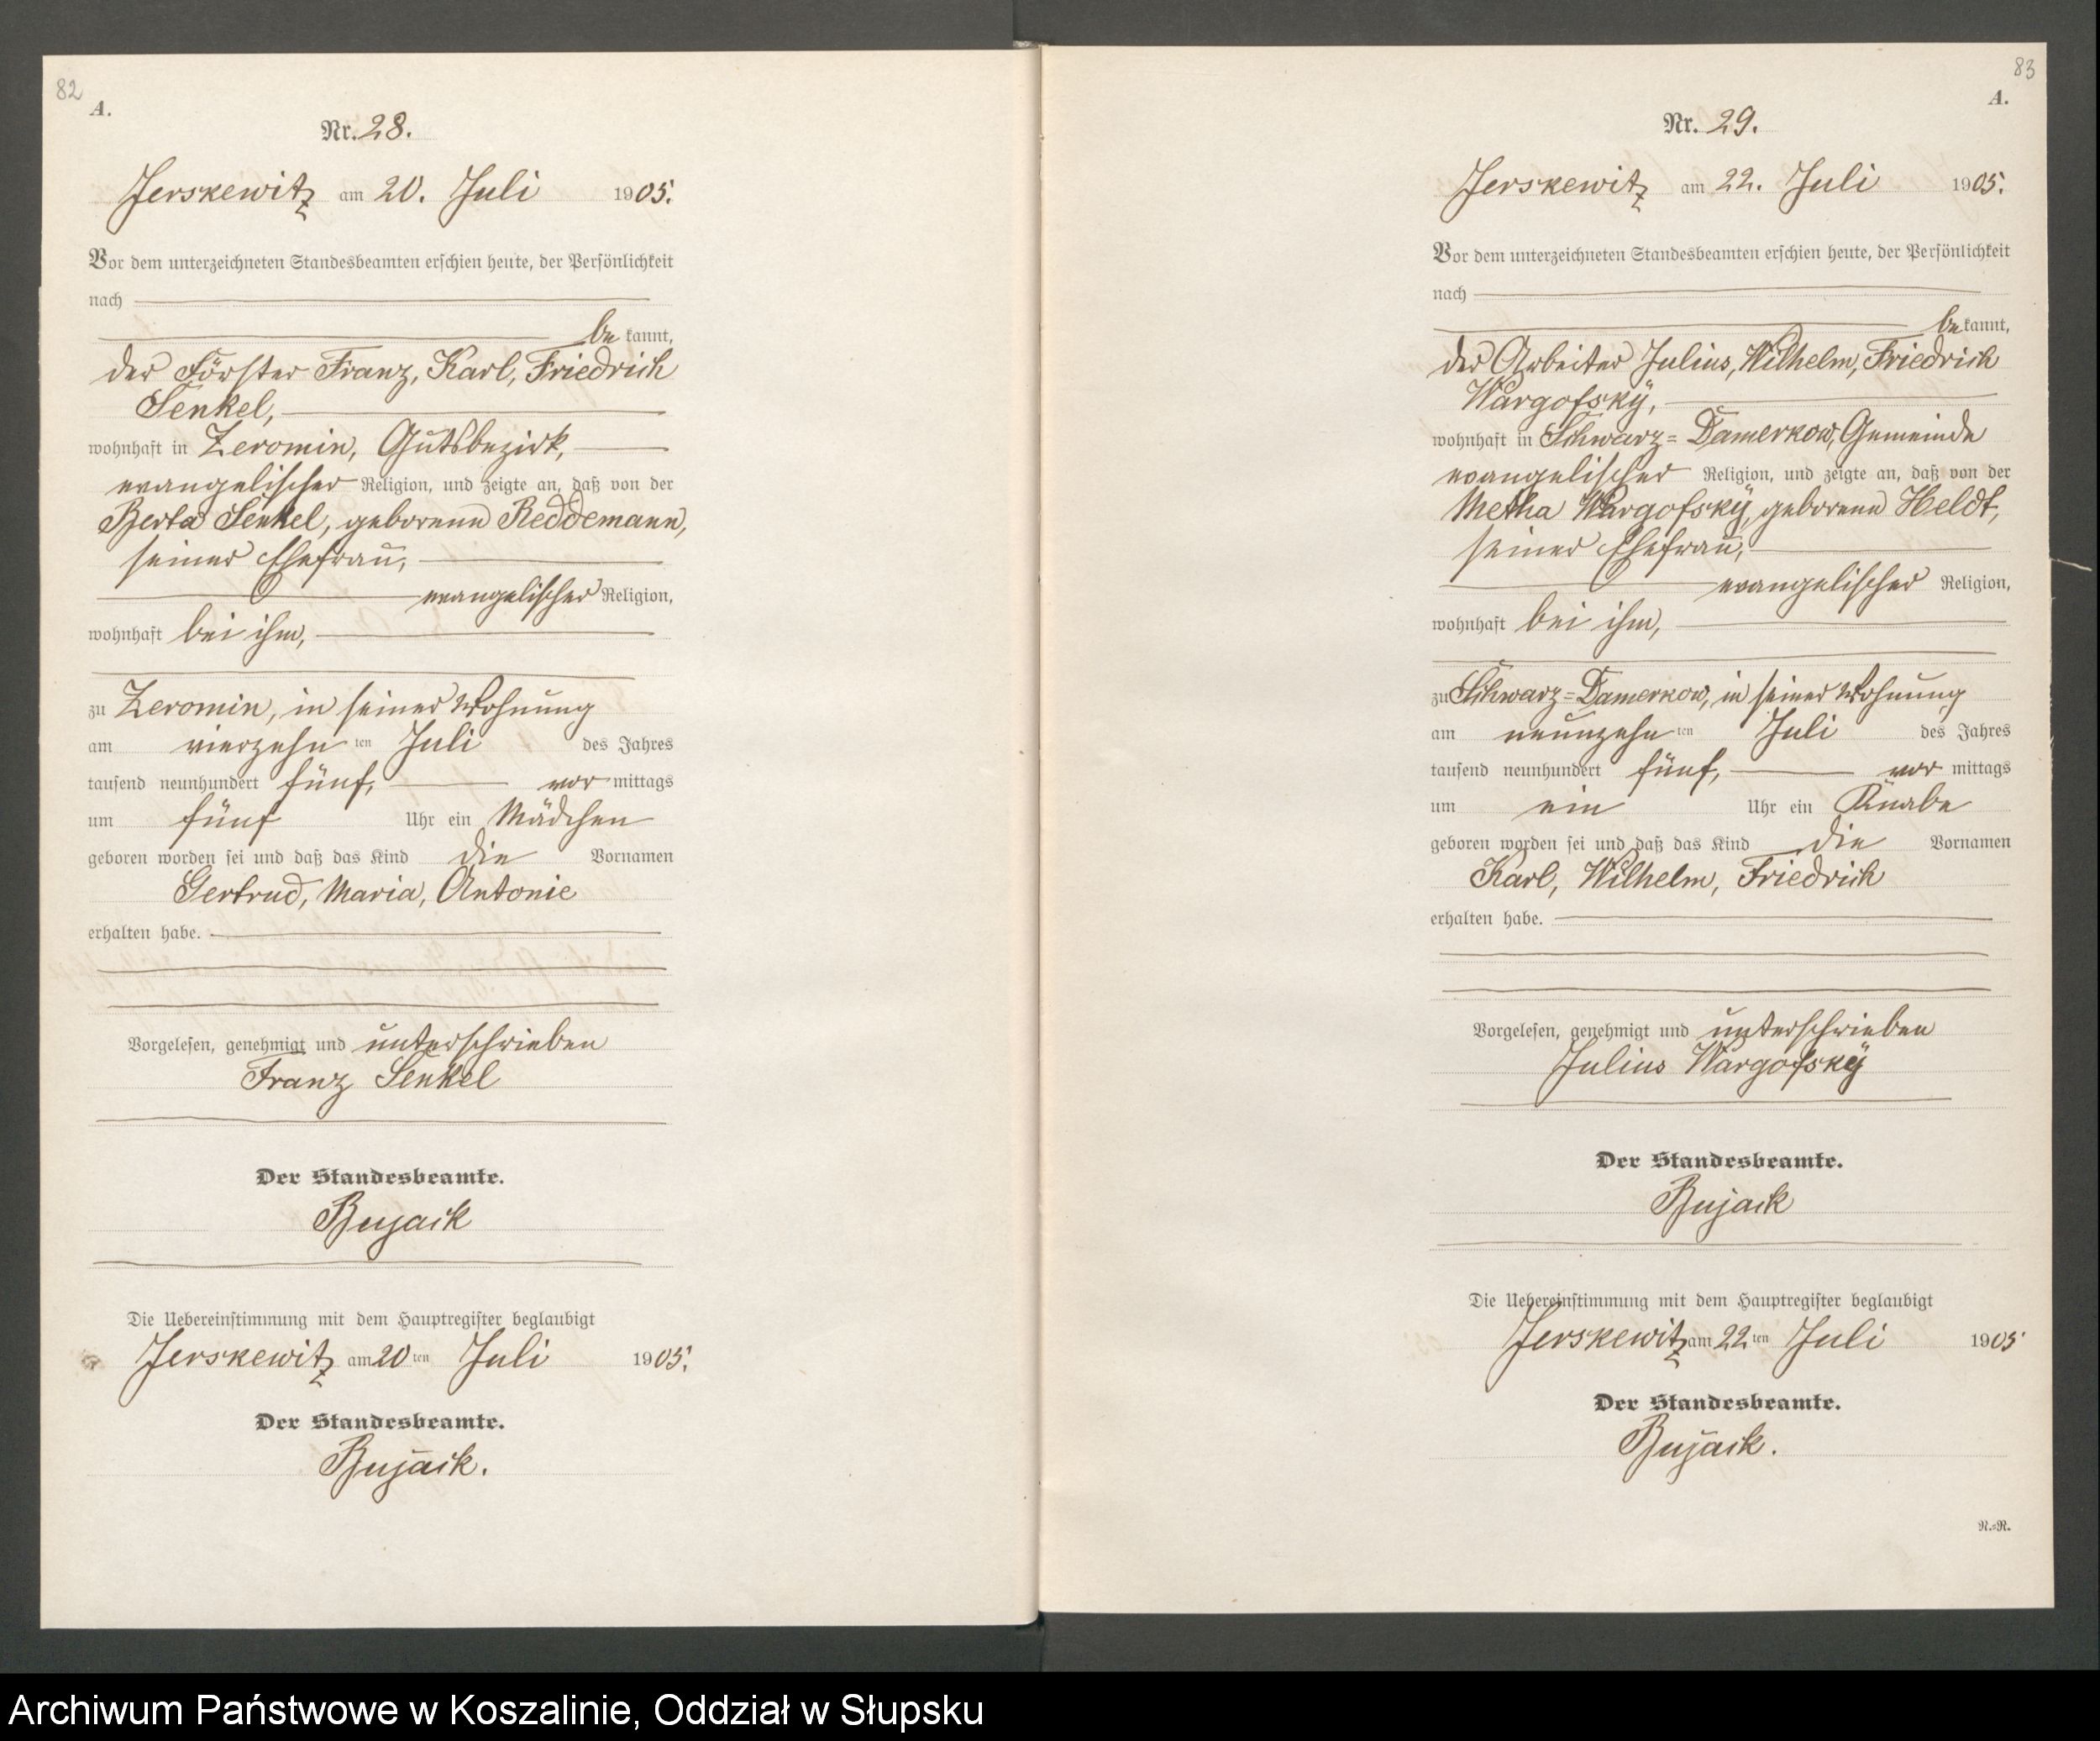 82
A.
Nr. 28.
Jerskewitz am 20. Juli 1905.
Vor dem unterzeichneten Standesbeamten erschien heute, der Persönlichkeit
nach
be kannt,
der Förster Franz, Karl, Friedrich
Senkel,
wohnhaft in Zeromin, Gutsbezirk,
evangelischer Religion, und zeigte an, daß von der
Berta Senkel, geborene Reddemann,
seiner Ehefrau,
evangelischer Religion,
wohnhaft bei ihm,
zu Zeromin, in seiner Wohnung
am vierzehn ten Juli des Jahres
tausend neunhundert fünf, vor mittags
um fünf Uhr ein Mädchen
geboren worden sei und daß das Kind die Vornamen
Gertrud, Maria, Antonie
erhalten habe.
Vorgelesen, genehmigt und unterschrieben
Franz Senkel
Der Standesbeamte.
Bujack
Die Uebereinstimmung mit dem Hauptregister beglaubigt
Jerskewitz am 20 ten Juli 1905.
Der Standesbeamte.
Bujack.
83
A.
Nr. 29.
Jerskewitz am 22. Juli 1905.
Vor dem unterzeichneten Standesbeamten erschien heute, der Persönlichkeit
nach
be kannt,
der Arbeiter Julius, Wilhelm, Friedrich
Wargofsky,
wohnhaft in Schwarz=Damerkow, Gemeinde
evangelischer Religion, und zeigte an, daß von der
Metha Wargofsky, geborene Heldt,
seiner Ehefrau,
evangelischer Religion,
wohnhaft bei ihm,
zu Schwarz=Damerkow, in seiner Wohnung
am neunzehn ten Juli des Jahres
tausend neunhundert fünf, vor mittags
um ein Uhr ein Knabe
geboren worden sei und daß das Kind die Vornamen
Karl, Wilhelm, Friedrich
erhalten habe.
Vorgelesen, genehmigt und unterschrieben
Julius Wargofsky
Der Standesbeamte.
Bujack
Die Uebereinstimmung mit dem Hauptregister beglaubigt
Jerskewitz am 22 ten Juli 1905
Der Standesbeamte.
Bujack.
N.=R.
Archiwum Państwowe w Koszalinie, Oddział w Słupsku